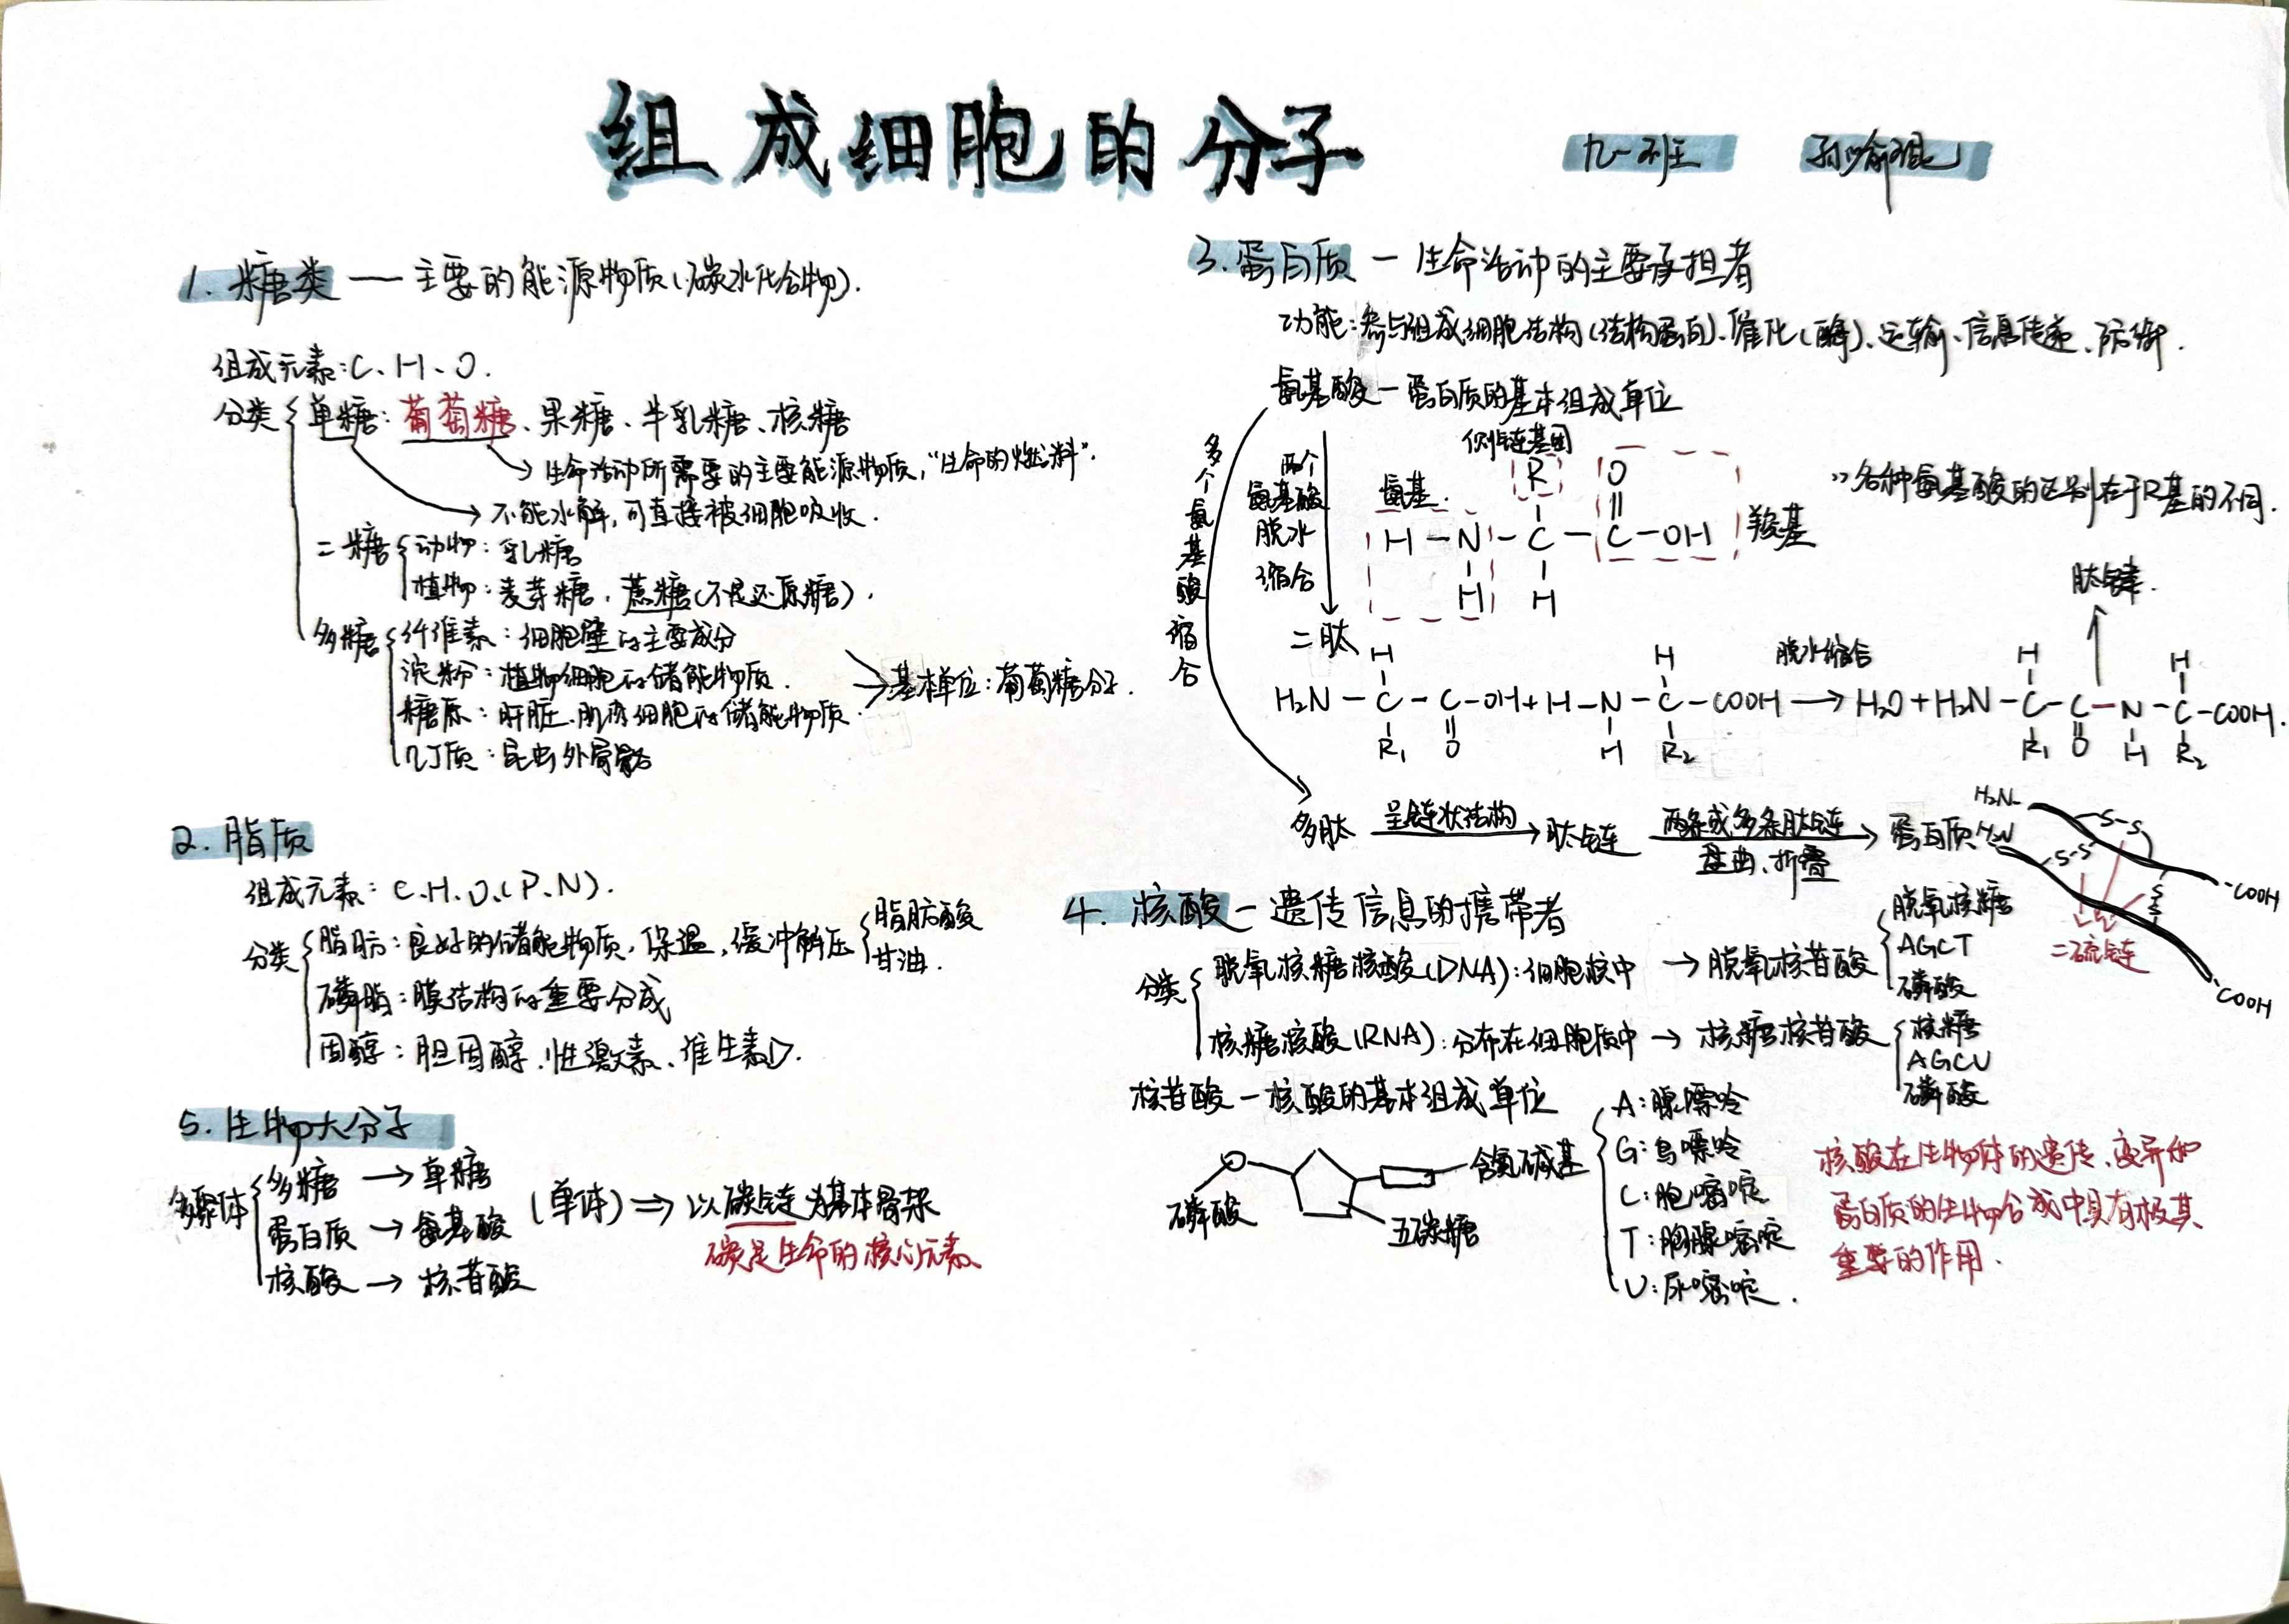 组成细胞的分子
九一班
1. 糖类 — 主要的能源物质(碳水化合物).
组成元素:C、H、O.
分类
单糖:葡萄糖、果糖、半乳糖、核糖
生命活动所需要的主要能源物质,“生命的燃料”.
不能水解,可直接被细胞吸收.
二糖
动物:乳糖
植物:麦芽糖、蔗糖(不是还原糖).
多糖
纤维素:细胞壁的主要成分
淀粉:植物细胞的储能物质.
糖原:肝脏、肌肉细胞的储能物质.
几丁质:昆虫外骨骼
基本单位:葡萄糖分子.
2. 脂质
组成元素:C、H、O、(P、N).
分类
脂肪:良好的储能物质,保温,缓冲解压
脂肪酸
甘油.
磷脂:膜结构的重要分成
固醇:胆固醇、性激素、维生素D.
5. 生物大分子
多聚体
多糖 → 单糖
蛋白质 → 氨基酸
核酸 → 核苷酸
(单体) ⇒ 以碳链为基本骨架
碳是生命的核心元素
3. 蛋白质 — 生命活动的主要承担者
功能:参与组成细胞结构(结构蛋白)、催化(酶)、运输、信息传递、防御.
氨基酸 — 蛋白质的基本组成单位
多个氨基酸缩合
两个
氨基酸
脱水
缩合
侧链基团
氨基.
R O
H – N – C – C – OH
H H
羧基
各种氨基酸的区别在于R基的不同.
二肽
肽键.
脱水缩合
H H H H
H₂N – C – C – OH + H – N – C – COOH → H₂O + H₂N – C – C – N – C – COOH.
R₁ O H R₂ R₁ O H R₂
多肽 呈链状结构 → 肽链 两条或多条肽链 → 蛋白质
盘曲、折叠
H₂N
H₂N
-S-S-
-S-S-
S
S
-COOH
-COOH
二硫键
4. 核酸 — 遗传信息的携带者
分类
脱氧核糖核酸(DNA):细胞核中 → 脱氧核苷酸
脱氧核糖
AGCT
磷酸
核糖核酸(RNA):分布在细胞质中 → 核糖核苷酸
核糖
AGCU
磷酸
核苷酸 — 核酸的基本组成单位
磷酸
五碳糖
含氮碱基
A:腺嘌呤
G:鸟嘌呤
C:胞嘧啶
T:胸腺嘧啶
U:尿嘧啶.
核酸在生物体的遗传、变异和
蛋白质的生物合成中具有极其
重要的作用.